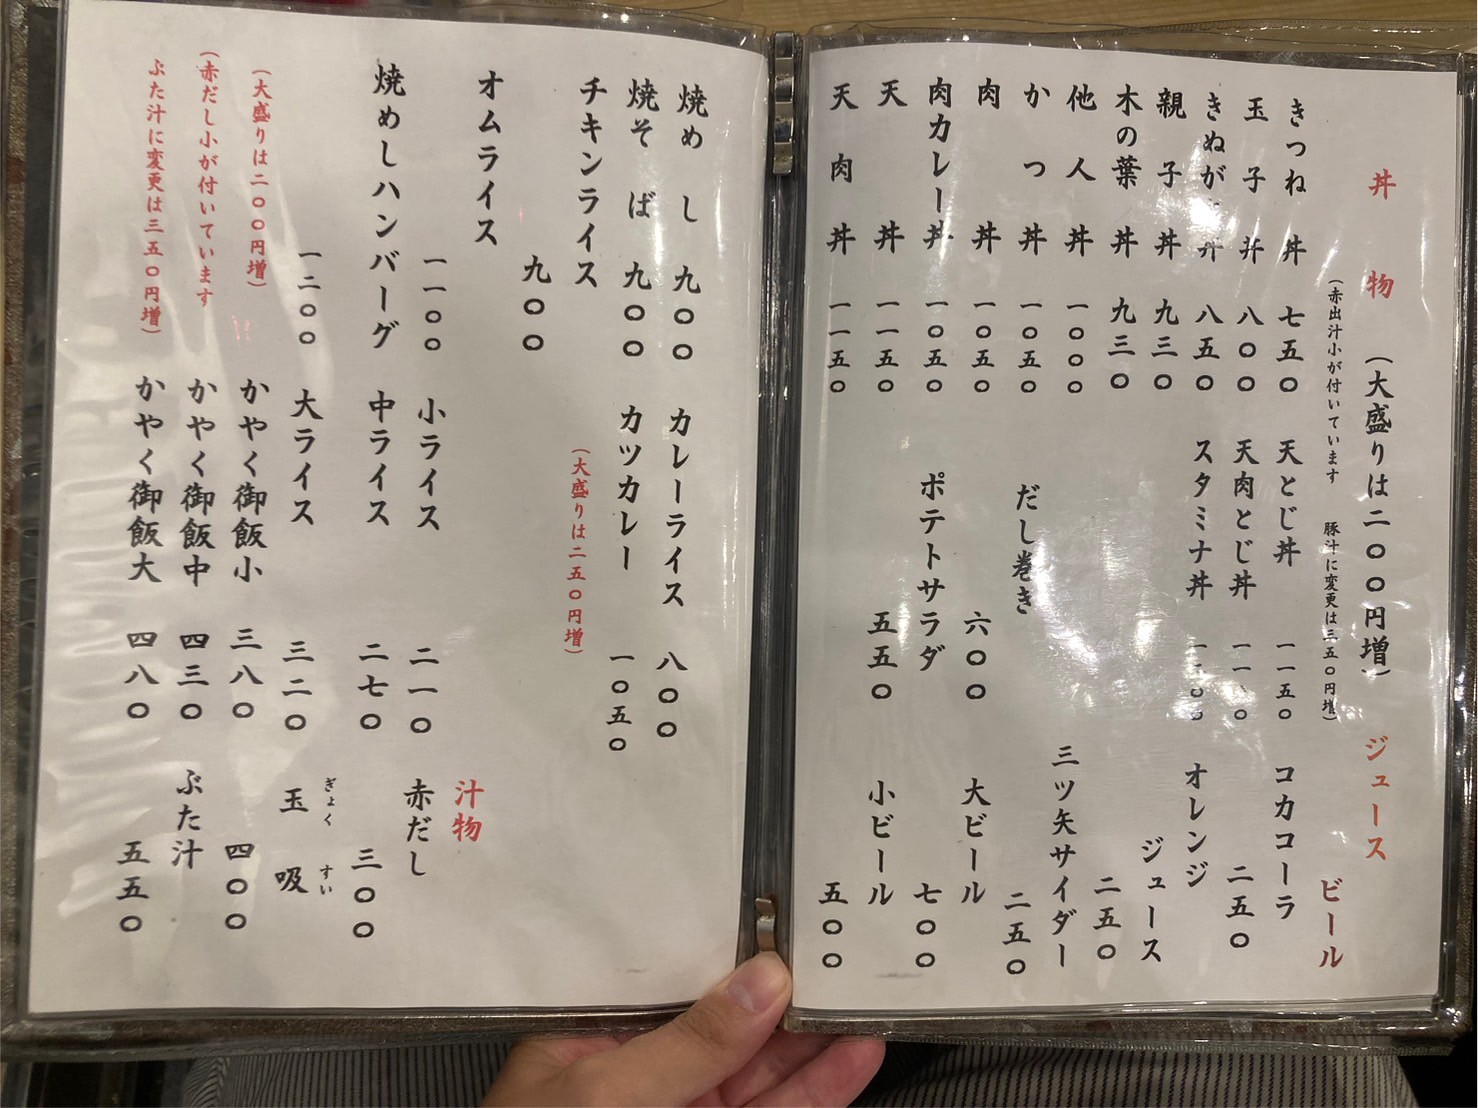 丼物 (大盛りは二〇〇円増)
(赤出汁小が付いています 豚汁に変更は三五〇円増)
きつね丼 七五〇
玉子丼 八〇〇
きぬが 丼 八五〇
親子丼 九三〇
木の葉丼 九三〇
他人丼 一〇〇〇
かつ丼 一〇五〇
肉丼 一〇五〇
肉カレー丼 一〇五〇
天丼 一一五〇
天肉丼 一一五〇
天とじ丼 一一五〇
天肉とじ丼
スタミナ丼
だし巻き 六〇〇
ポテトサラダ 五五〇
ジュース
ビール
コカコーラ 二五〇
オレンジジュース 二五〇
三ツ矢サイダー 二五〇
大ビール 七〇〇
小ビール 五〇〇
焼めし 九〇〇
焼そば 九〇〇
チキンライス 九〇〇
オムライス 一一〇〇
焼めしハンバーグ 一二〇〇
(大盛りは二〇〇円増)
(赤だし小が付いています
ぶた汁に変更は三五〇円増)
カレーライス 八〇〇
カツカレー 一〇五〇
(大盛りは二五〇円増)
小ライス 二一〇
中ライス 二七〇
大ライス 三二〇
かやく御飯小 三八〇
かやく御飯中 四三〇
かやく御飯大 四八〇
汁物
赤だし 三〇〇
ぎょく すい
玉吸 四〇〇
ぶた汁 五五〇